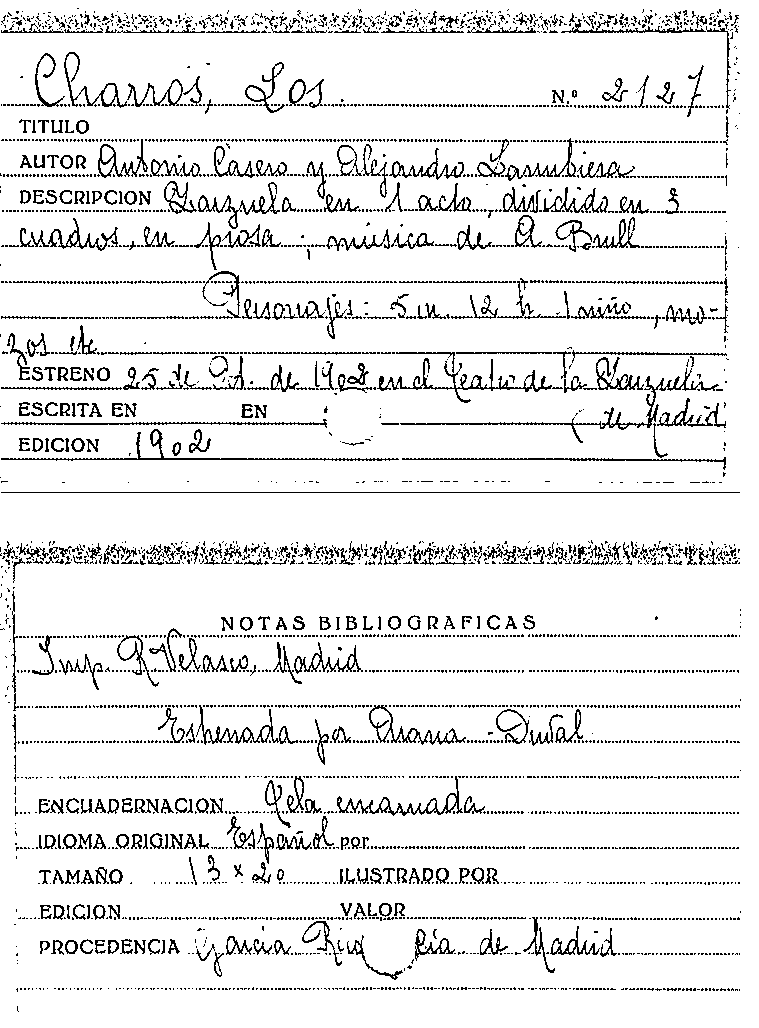 Charros, Los. N.º 2127
TITULO
AUTOR Antonio Casero y Alejandro Larrubiera
DESCRIPCION Zarzuela en 1 acto, dividido en 3
cuadros, en prosa; música de A Brull
Personajes: 5 m. 12 h. 1 niño, mo-
zos etc
ESTRENO 25 de Oct. de 1902 en el Teatro de la Zarzuela
ESCRITA EN EN (de Madrid
EDICION 1902
NOTAS BIBLIOGRAFICAS
Imp. R. Velasco, Madrid
Estrenada por Arana - Duval
ENCUADERNACION Tela encarnada
IDIOMA ORIGINAL Español por
TAMAÑO 13 x 20 ILUSTRADO POR
EDICION VALOR
PROCEDENCIA García Rico Cía. de Madrid